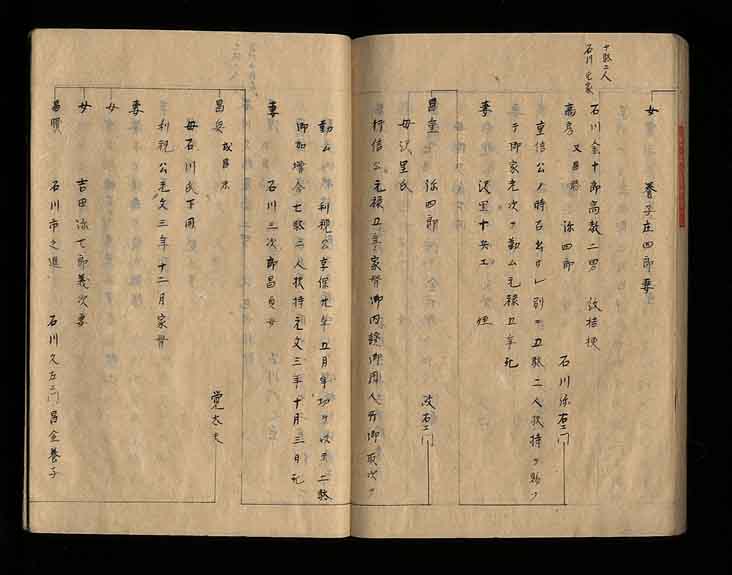 女 養子庄四郎妻
十騎二人
石川七家
石川金十郎高数二男 紋桔梗
高房 又昌房 弥四郎 石川弥右ヱ門
重信公ノ時召出サレ別ニ五騎二人扶持ヲ賜フ
于御家老次ヲ勤ム元禄丑年死
妻 沢里十兵エ 姪
昌重 弥四郎 改右ヱ門
母沢里氏
行信公元禄丑年家督御内證御用人并御取次ヲ
勤ム 利視公享保元年五月年功ヲ以テ二騎
御加増合七騎二人扶持元文三年十月三日死
妻 石川三次郎昌貞女
昌兵 或昌永 覚太夫
母石川氏下同
利視公元文三年十二月家督
妻
女
女 吉田弥七郎義次妻
昌贇 石川市之進 石川久左ヱ門昌全養子